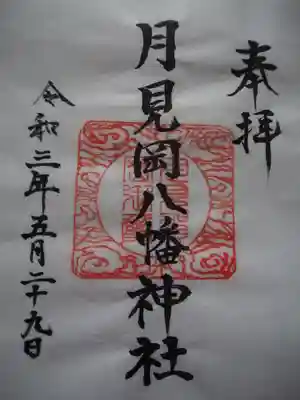 奉拝
月見岡八幡神社
令和三年五月二十九日